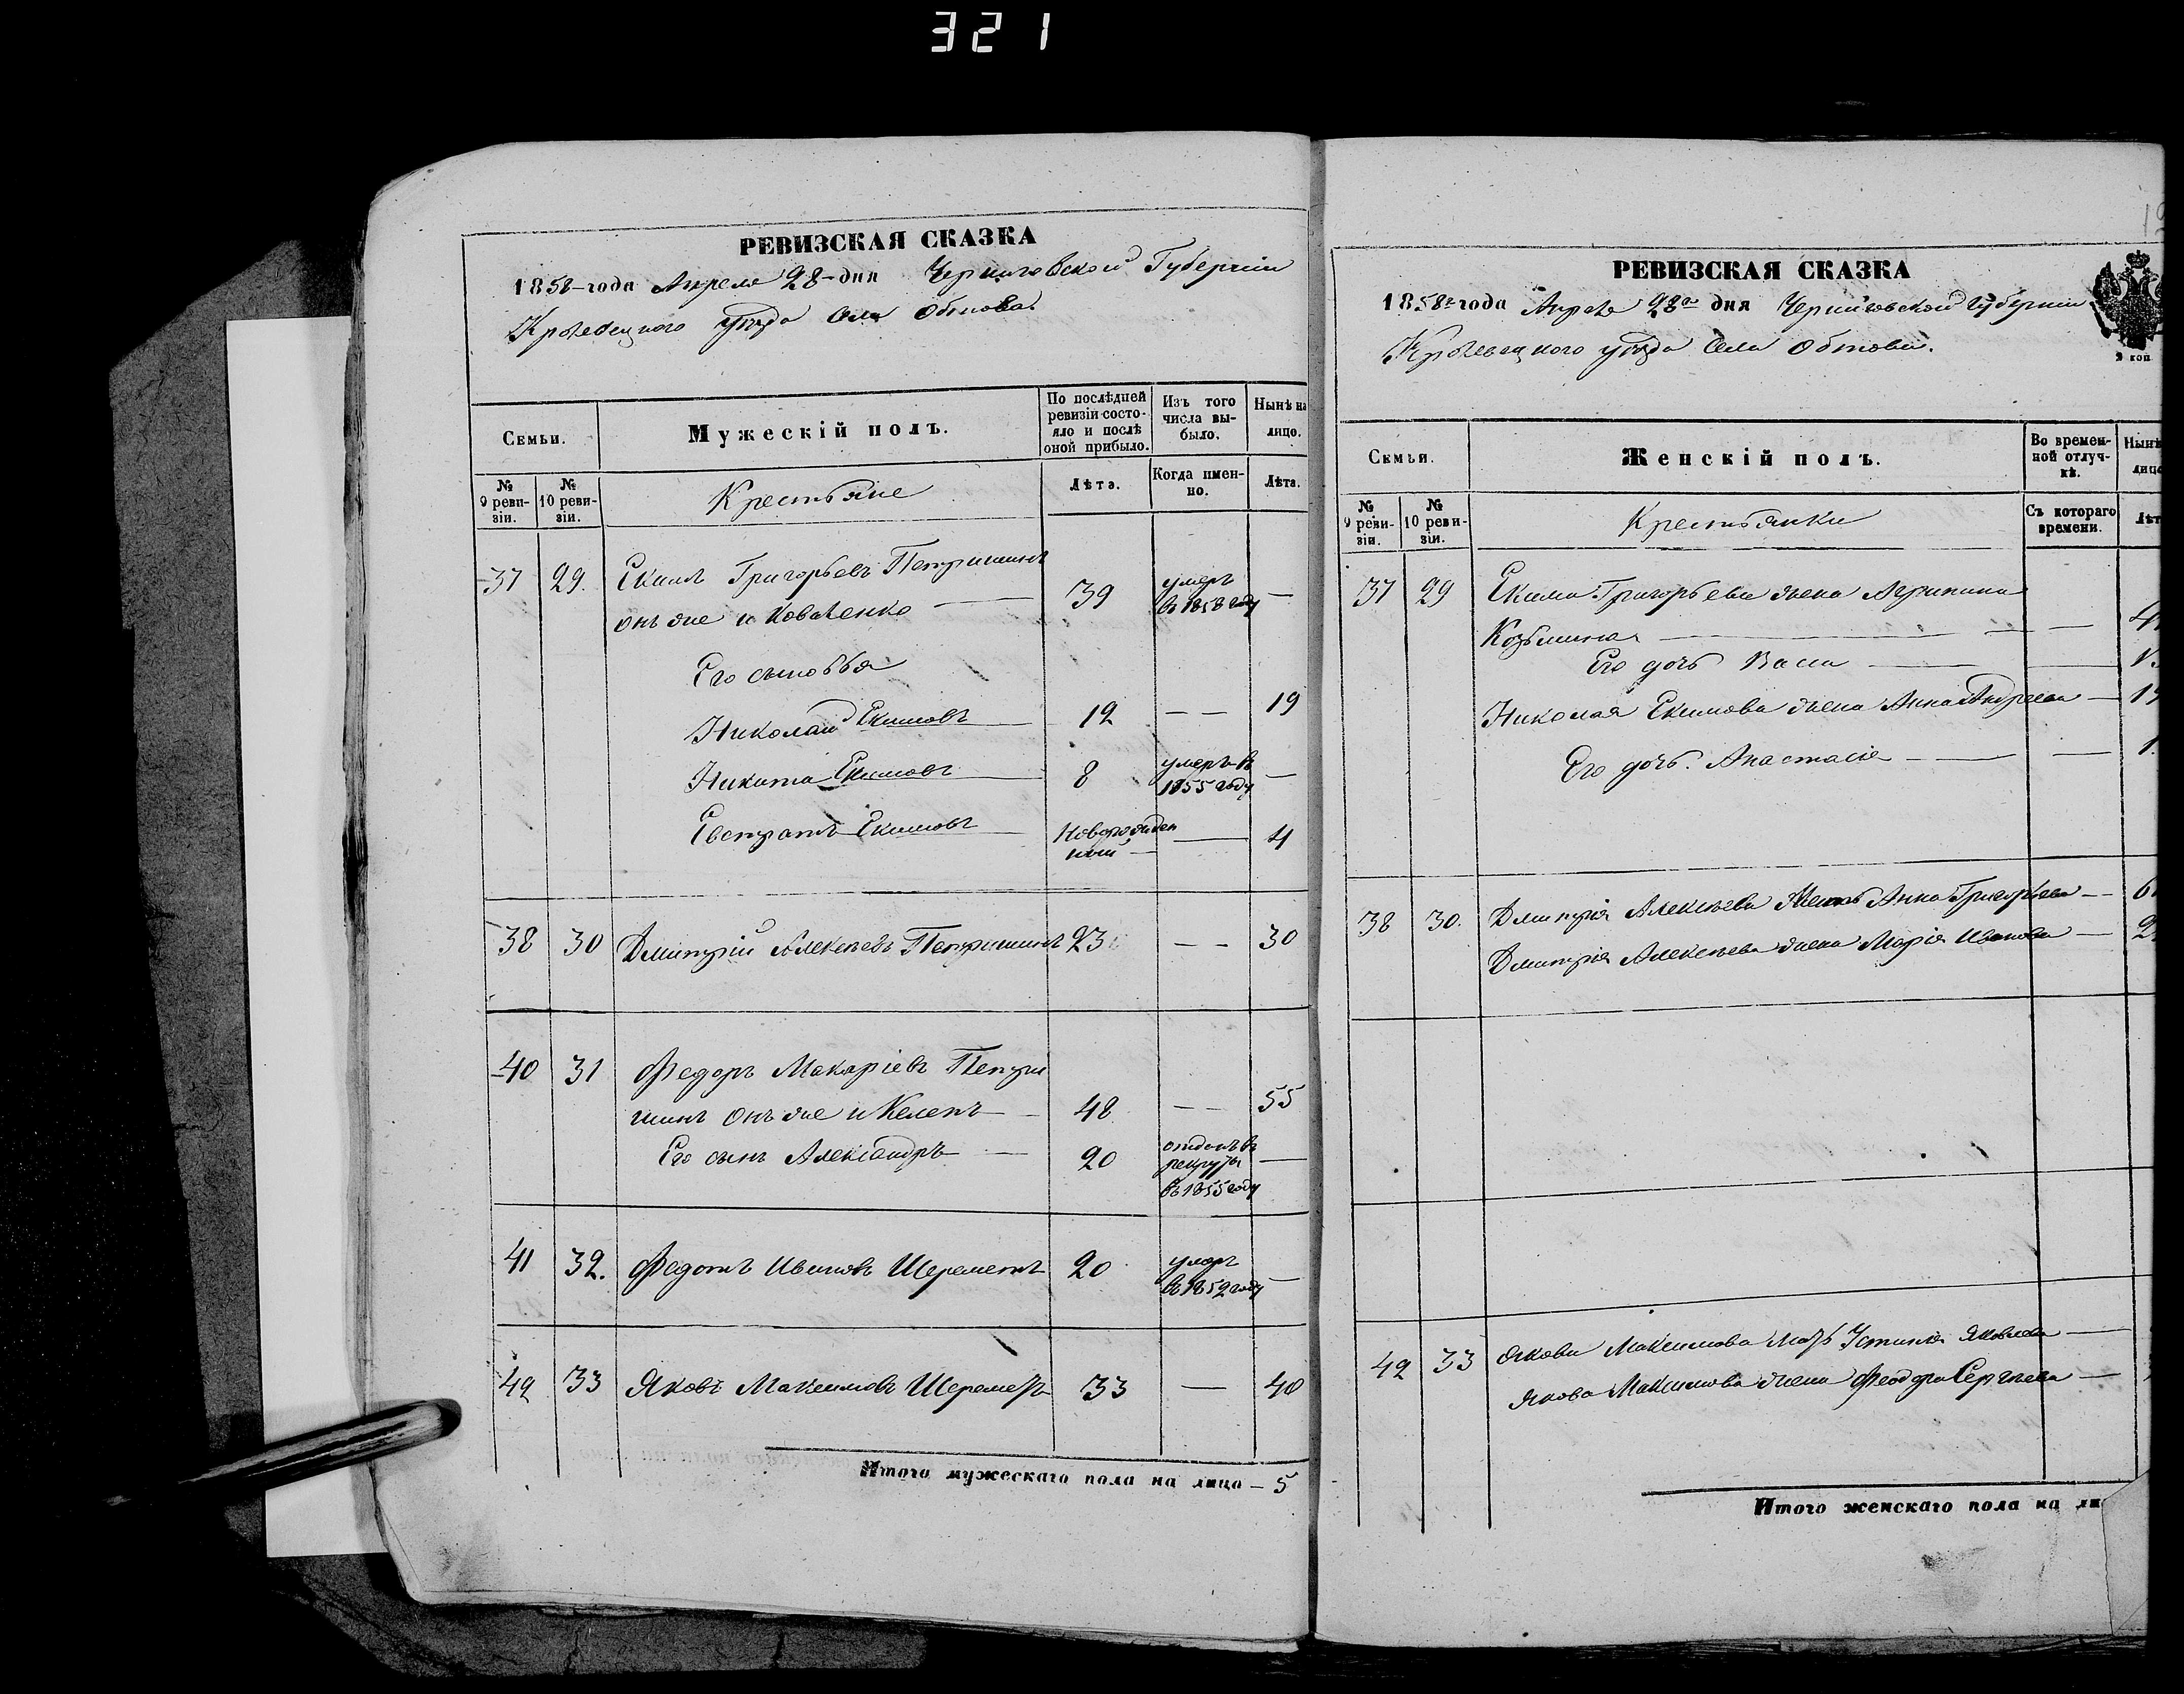 321
РЕВИЗСКАЯ СКАЗКА
1858-года Апреля 28-дня Черниговской Губернии
Кролевецкого уезда Села Обтова
Семьи.
Мужескій полъ.
По послѣдней ревизіи состояло и послѣ оной прибыло.
Изъ того числа выбыло.
Нынѣ на лицо.
№ 9 ревизіи.
№ 10 ревизіи.
Крестьяне
Лѣта.
Когда именно.
Лѣта.
37 29. Екимъ Григорьевъ Петришинъ
онъ же и Коваленко 39 умеръ в 1858 году —
Его сыновья
Николай Екимовъ 12 — — 19
Никита Екимовъ 8 умеръ в 1855 году —
Евстратъ Екимовъ Новорожденный — 4
38 30 Дмитрий Алексеевъ Петришинъ 23 — — 30
40 31 Федоръ Макаріевъ Петри
шинъ онъ же и Келепъ 48 — — 55
Его сынъ Александръ 20 отданъ въ рекруты въ 1855 году —
41 32. Федотъ Ивановъ Шереметъ 20 умеръ въ 1852 году —
42 33 Яковъ Максимовъ Шереметъ 33 — 40
Итого мужескаго пола на лицо — 5
РЕВИЗСКАЯ СКАЗКА
1858 года Апреля 28 дня Черниговской Губернии
Кролевецкого уезда Села Обтова.
2 коп
Семьи.
Женскій полъ.
Во временной отлучкѣ.
Нынѣ
лицо
№ 9 ревизіи.
№ 10 ревизіи.
Крестьянки
Съ котораго времени.
Лѣт
37 29 Екима Григорьева жена Агрипина
Козьмина — —
Его дочь —
Николая Екимова жена Анна Андреева —
Его дочь Анастасія — —
38 30. Дмитрія Алексеева Мать Анна Григорьева —
Дмитрія Алексеева жена Марія Иванова —
42 33 Якова Максимова мать Устинья Яковлева —
Якова Максимова жена Феодора Сергеева —
Итого женскаго пола на ли